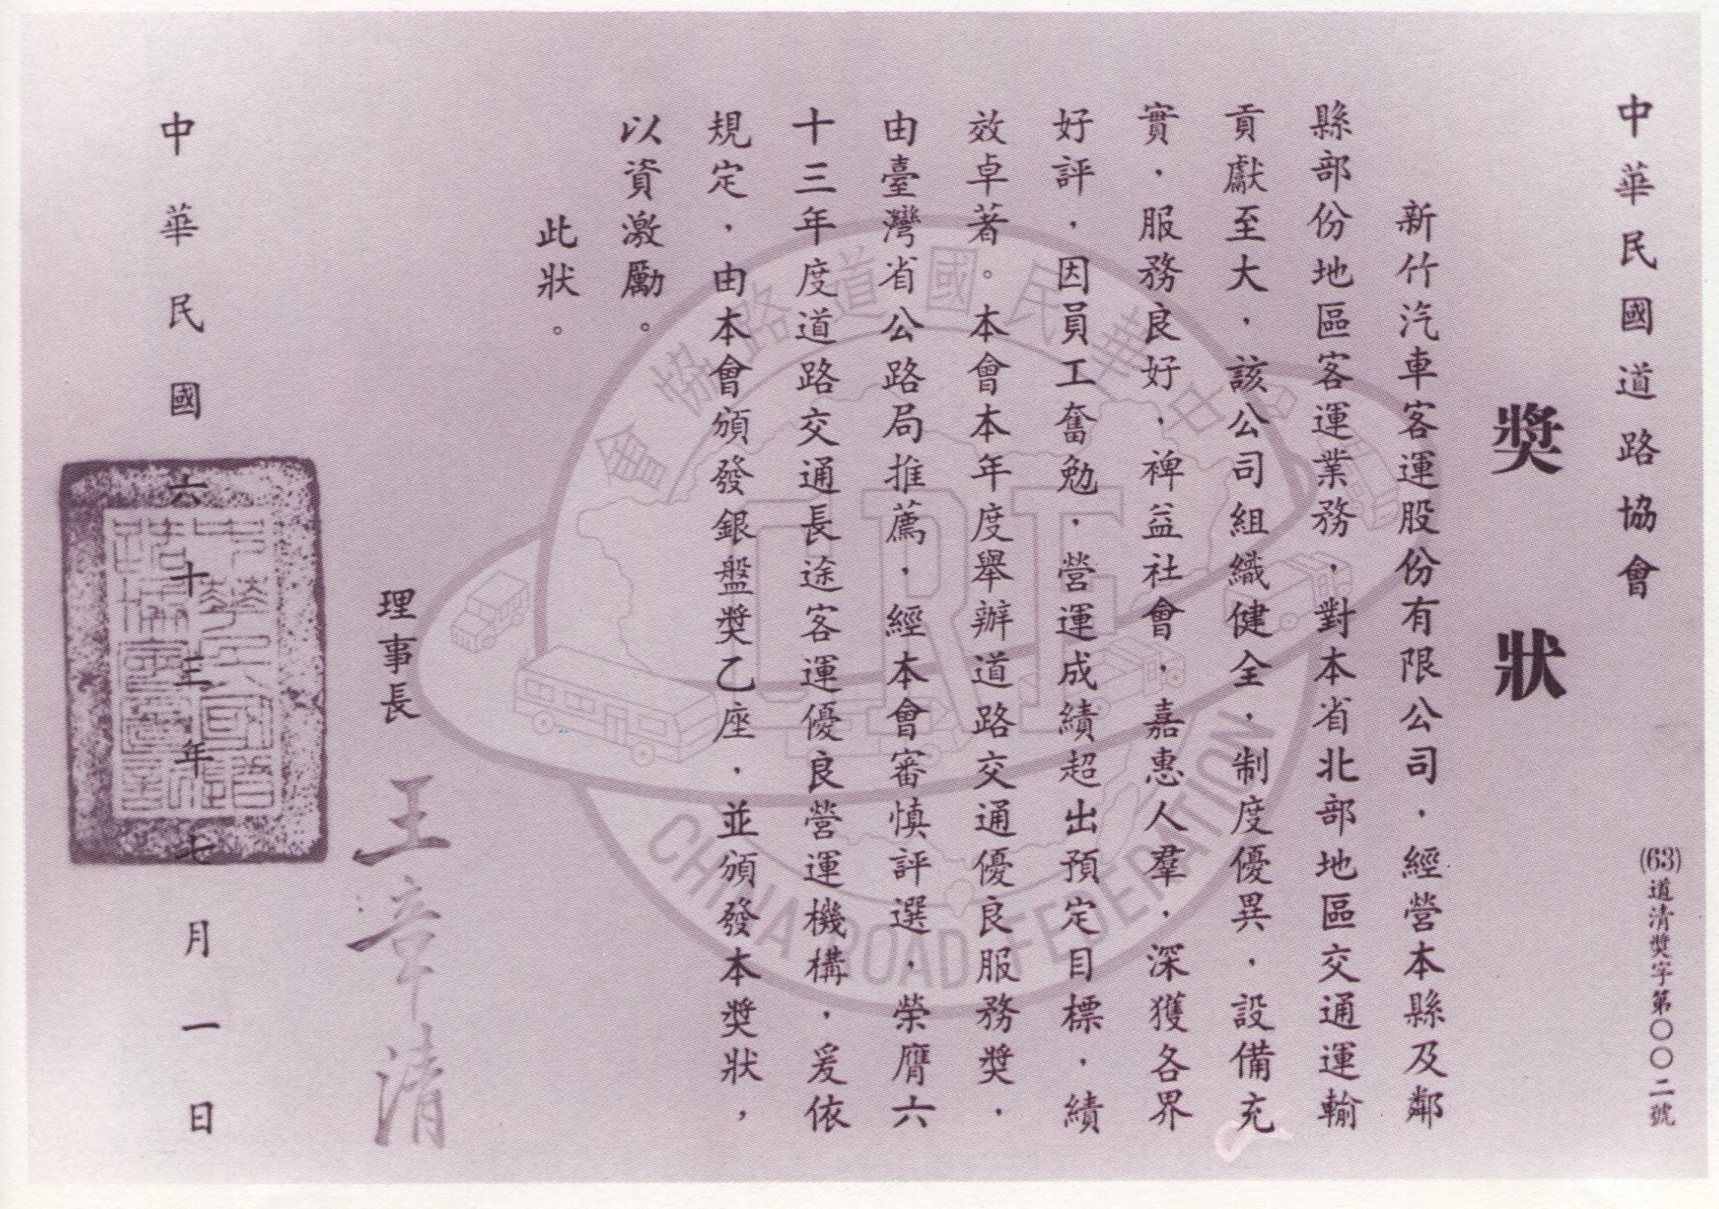 中華民國道路協會
(63)道清獎字第〇〇二號
獎狀
新竹汽車客運股份有限公司，經營本縣及鄰
縣部份地區客運業務，對本省北部地區交通運輸
貢獻至大，該公司組織健全，制度優異，設備充
實，服務良好，裨益社會，嘉惠人羣，深獲各界
好評，因員工奮勉，營運成績超出預定目標，績
效卓著。本會本年度舉辦道路交通優良服務獎，
由臺灣省公路局推薦，經本會審慎評選，榮膺六
十三年度道路交通長途客運優良營運機構，爰依
規定，由本會頒發銀盤獎乙座，並頒發本獎狀，
以資激勵。
此狀。
理事長 王章清
中華民國六十三年七月一日
中華民國道路協會
CRF
CHINA ROAD FEDERATION